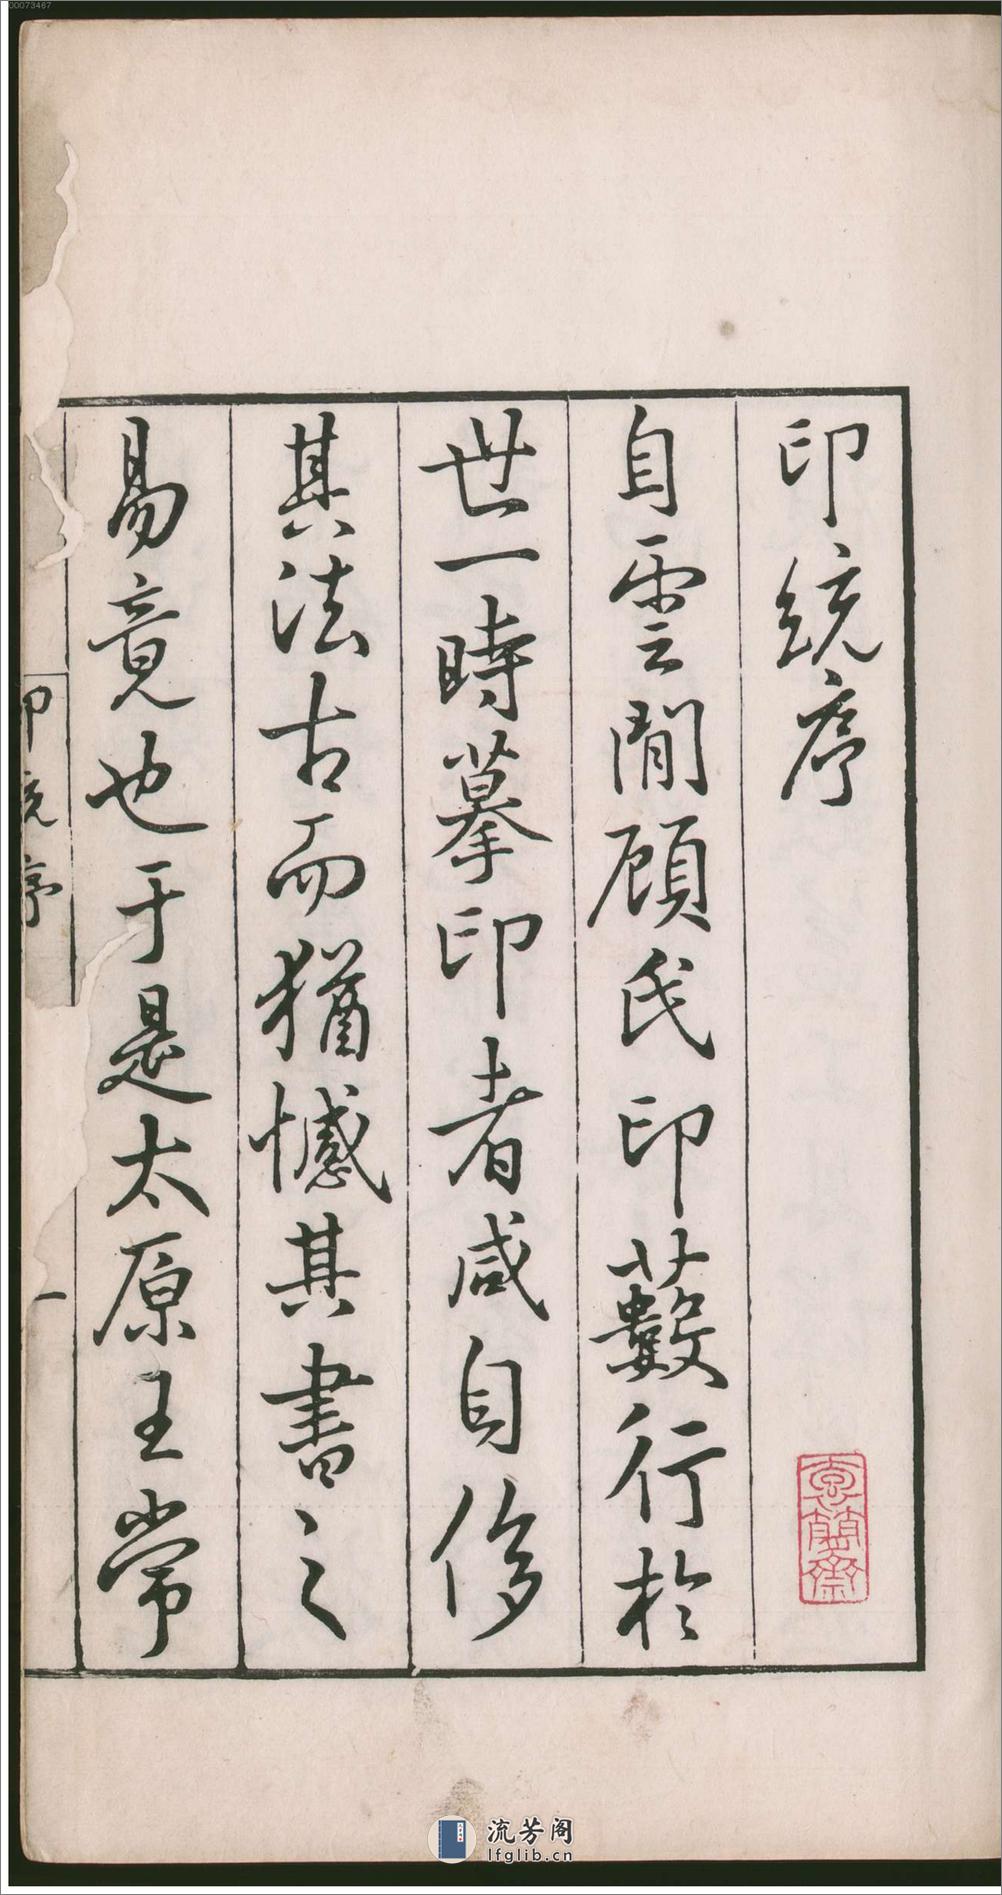 印統序
自雲間顧氏印藪行於
世一時摹印者咸自侈
其法古而猶憾其書之
易竟也于是太原王常
印統序
一
00073467
流芳阁
lfglib.cn